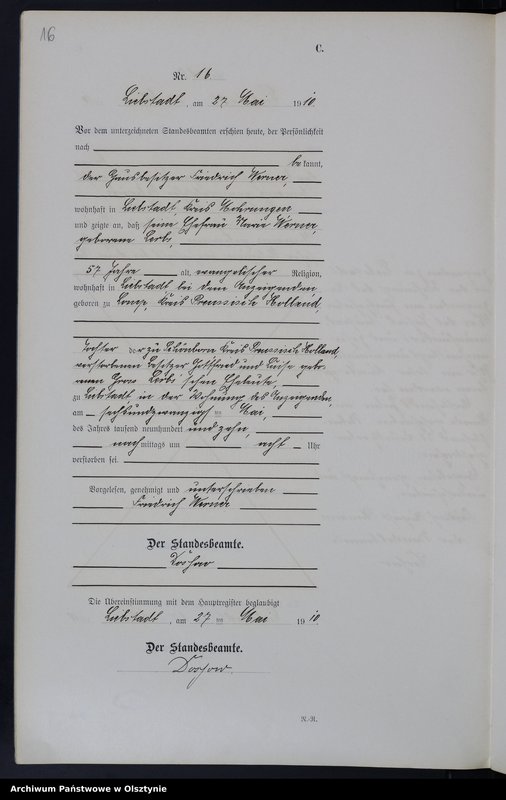 16
C.
Nr. 16
Liebstadt, am 27 Mai 1910.
Vor dem unterzeichneten Standesbeamten erschien heute, der Persönlichkeit
nach
bekannt,
der Hausbesitzer Friedrich Werner,
wohnhaft in Liebstadt, Kreis Mohrungen
und zeigte an, daß seine Ehefrau Maria Werner,
geborene
57 Jahre alt, evangelischer Religion,
wohnhaft in Liebstadt bei dem Anzeigenden
geboren zu Kreis Preussisch Holland,
Tochter der zu Schönborn Kreis Preussisch Holland
verstorbenen Besitzer Gottfried und Luise gebo-
renen schen Eheleute,
zu Liebstadt, in der Wohnung des Anzeigenden,
am sechsundzwanzigsten Mai,
des Jahres tausend neunhundert und zehn,
nachmittags um acht Uhr
verstorben sei.
Vorgelesen, genehmigt und unterschrieben
Friedrich Werner
Der Standesbeamte.
Die Übereinstimmung mit dem Hauptregister beglaubigt
Liebstadt, am 27 ten Mai 1910
Der Standesbeamte.
N.-R.
Archiwum Państwowe w Olsztynie